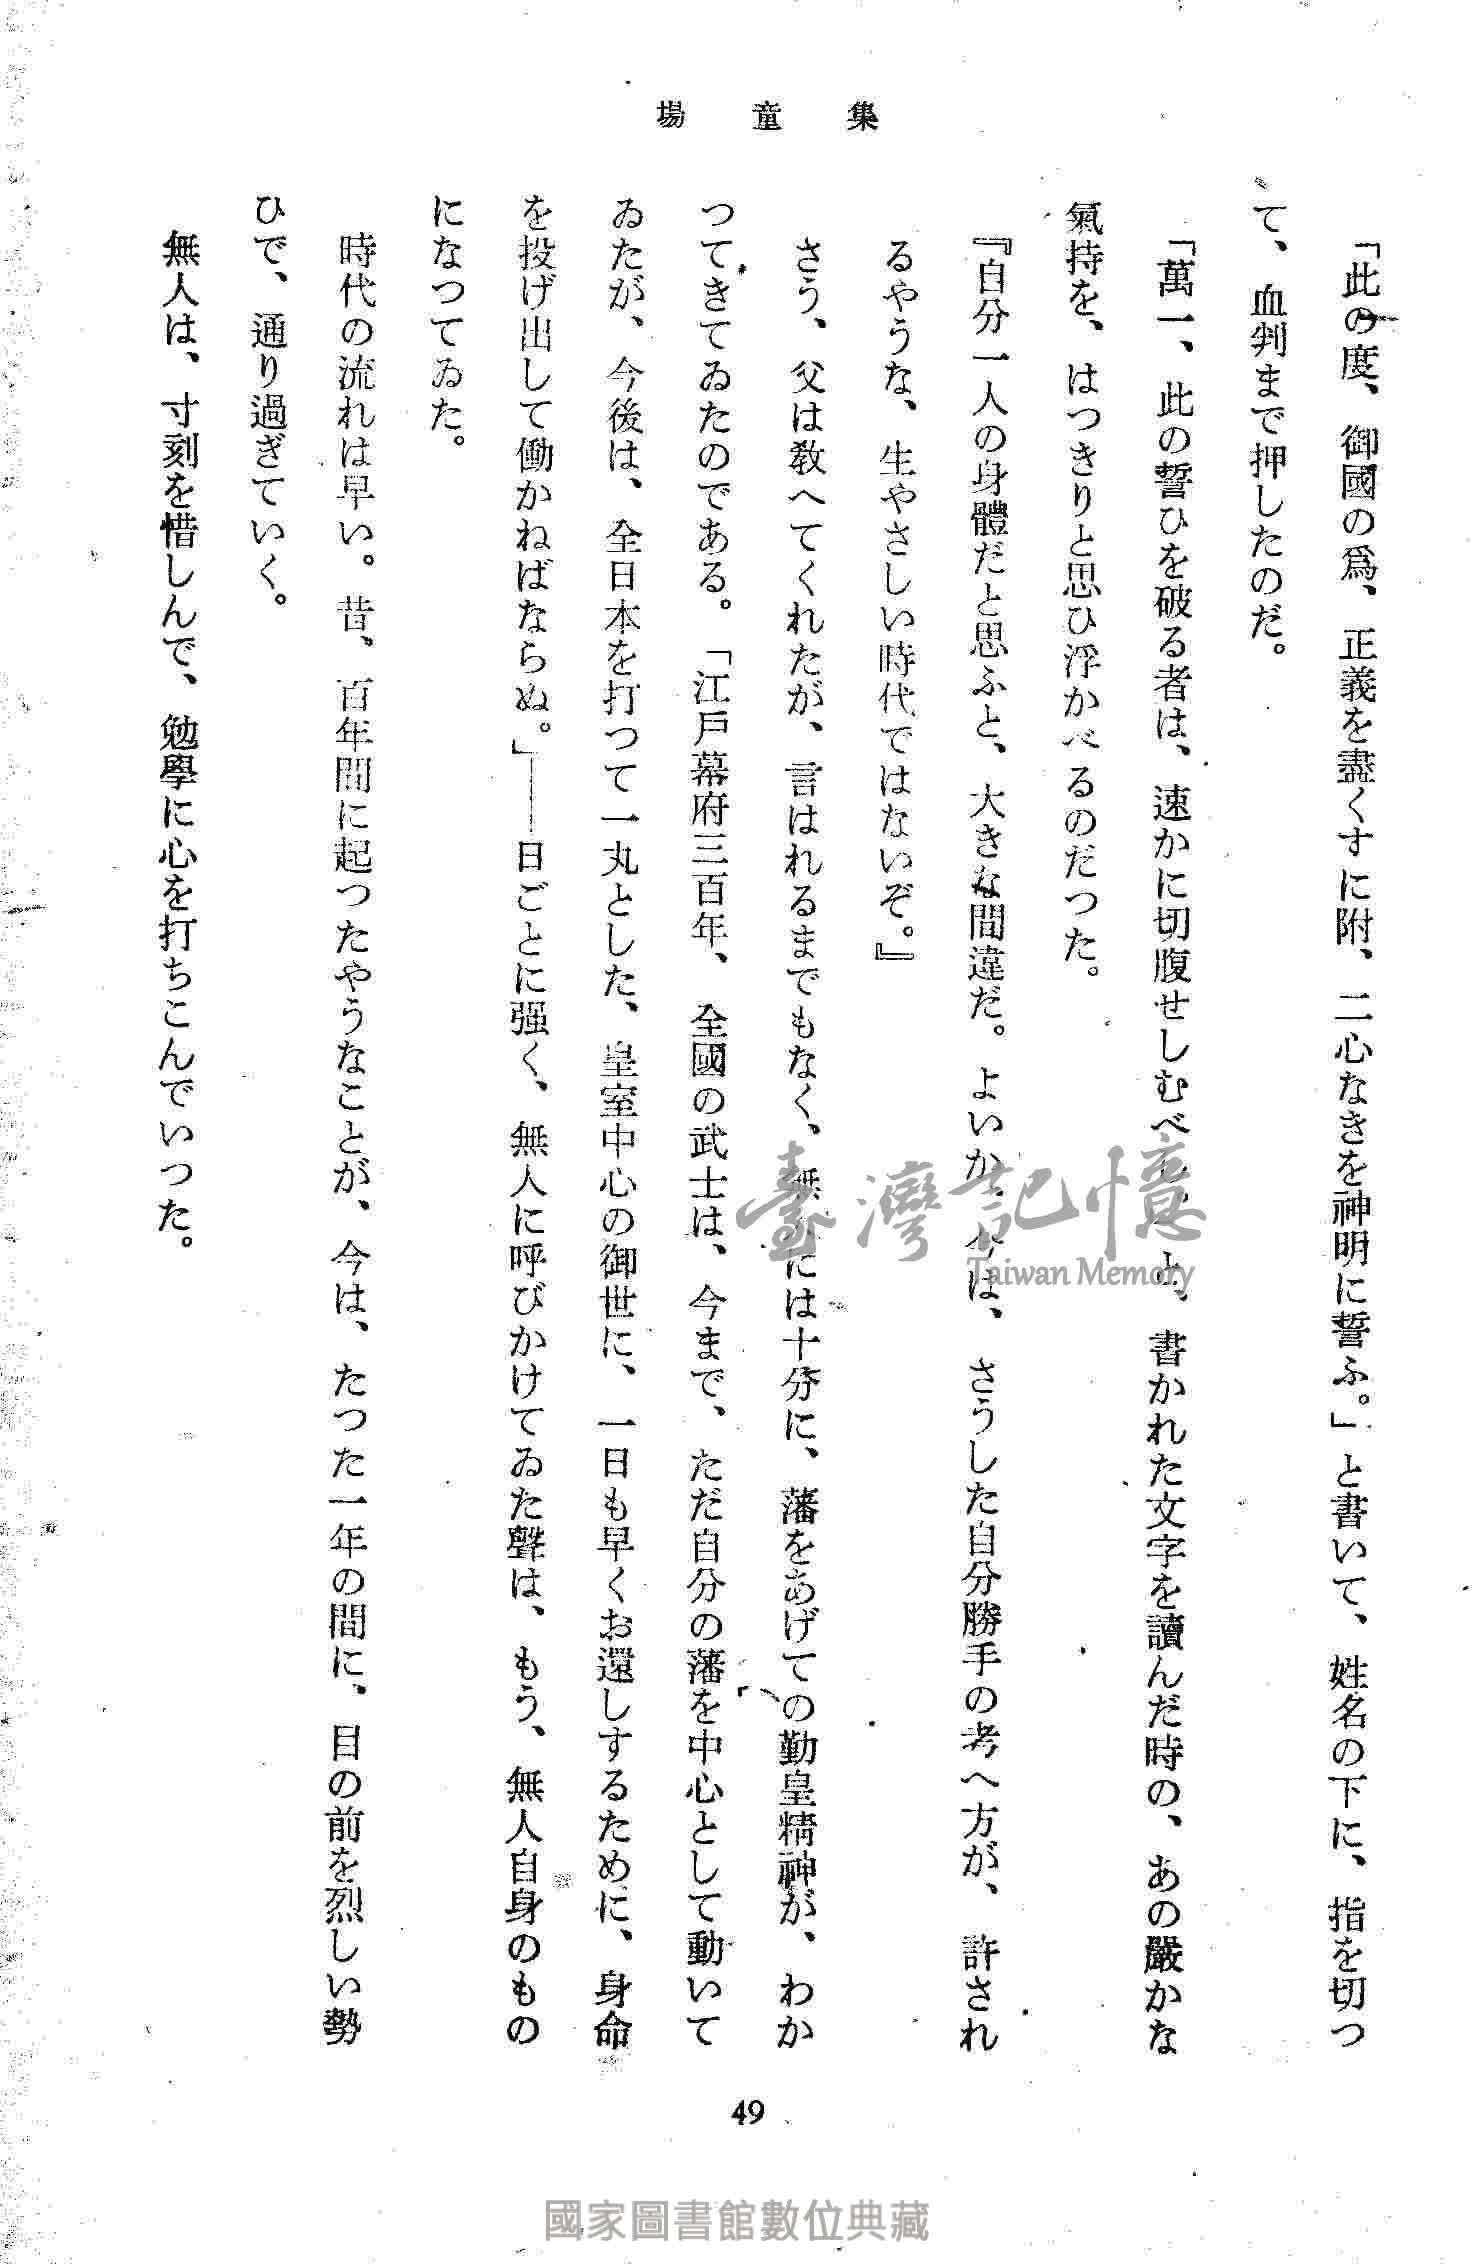 集童場
「此の度、御國の爲、正義を盡くすに附、二心なきを神明に誓ふ。」と書いて、姓名の下に、指を切つ
て、血判まで押したのだ。
「萬一、此の誓ひを破る者は、速かに切腹せしむべ と、書かれた文字を讀んだ時の、あの嚴かな
氣持を、はつきりと思ひ浮かべるのだつた。
『自分一人の身體だと思ふと、大きな間違だ。よいか、今は、さうした自分勝手の考へ方が、許され
るやうな、生やさしい時代ではないぞ。』
さう、父は敎へてくれたが、言はれるまでもなく、無 には十分に、藩をあげての勤皇精神が、わか
つてきてゐたのである。「江戸幕府三百年、全國の武士は、今まで、ただ自分の藩を中心として動いて
ゐたが、今後は、全日本を打つて一丸とした、皇室中心の御世に、一日も早くお還しするために、身命
を投げ出して働かねばならぬ。」――日ごとに强く、無人に呼びかけてゐた聲は、もう、無人自身のもの
になつてゐた。
時代の流れは早い。昔、百年間に起つたやうなことが、今は、たつた一年の間に、目の前を烈しい勢
ひで、通り過ぎていく。
無人は、寸刻を惜しんで、勉學に心を打ちこんでいつた。
臺灣記憶
Taiwan Memory
49
國家圖書館數位典藏